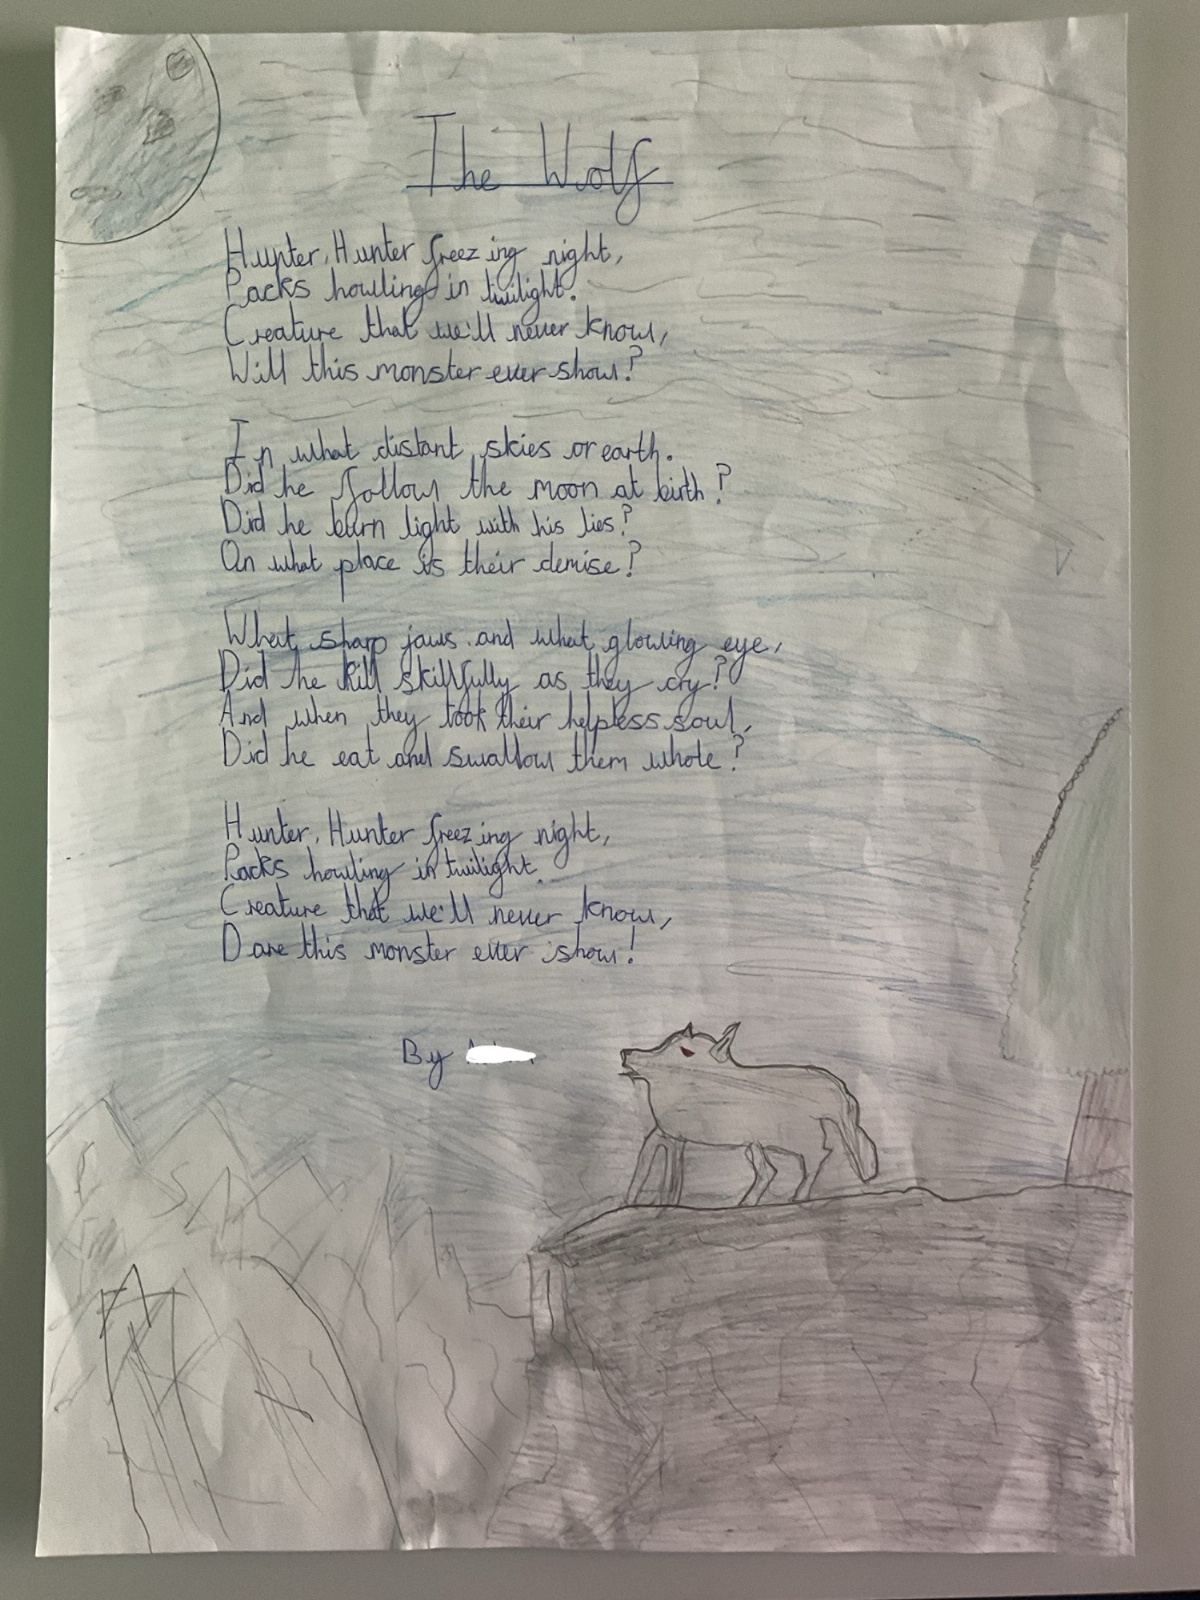 The Wolf
Hunter, Hunter freezing night,
Packs howling in twilight.
Creature that we'll never know,
Will this monster ever show?
In what distant skies or earth.
Did he follow the moon at birth?
Did he burn light with his lies?
On what place is their demise?
What sharp jaws and what glowing eye,
Did he kill skillfully as they cry?
And when they took their helpless soul,
Did he eat and swallow them whole?
Hunter, Hunter freezing night,
Packs howling in twilight.
Creature that we'll never know,
Dare this monster ever show!
By